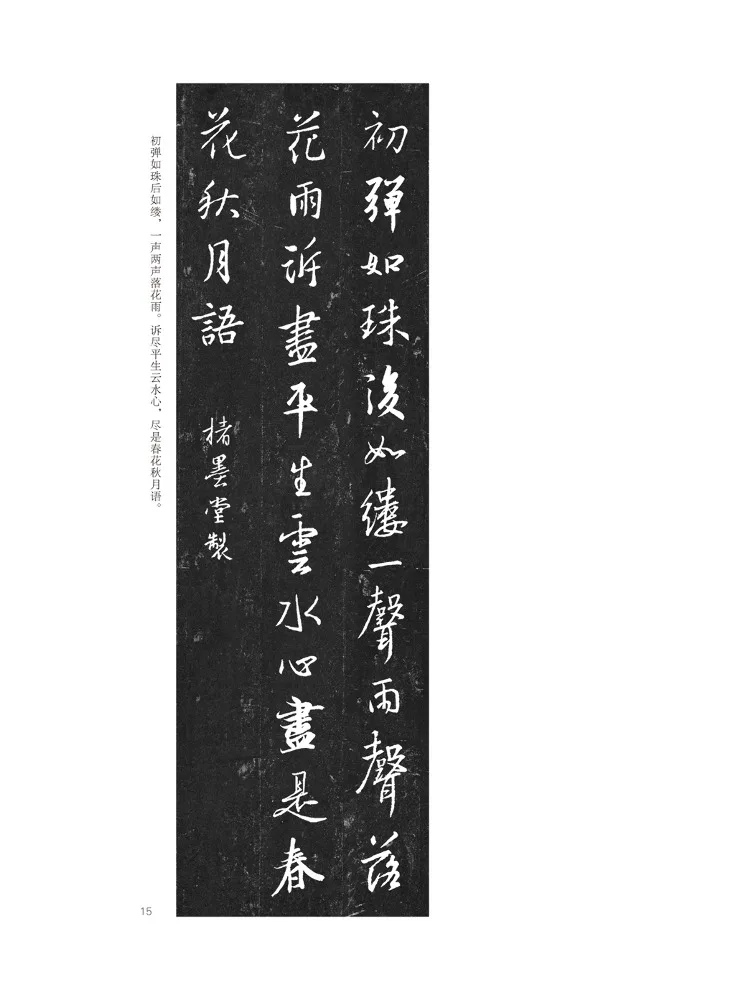 初彈如珠後如縷一聲兩聲落
花雨訴盡平生雲水心盡是春
花秋月語
楮墨堂製
初弹如珠后如缕，一声两声落花雨。诉尽平生云水心，尽是春花秋月语。
15